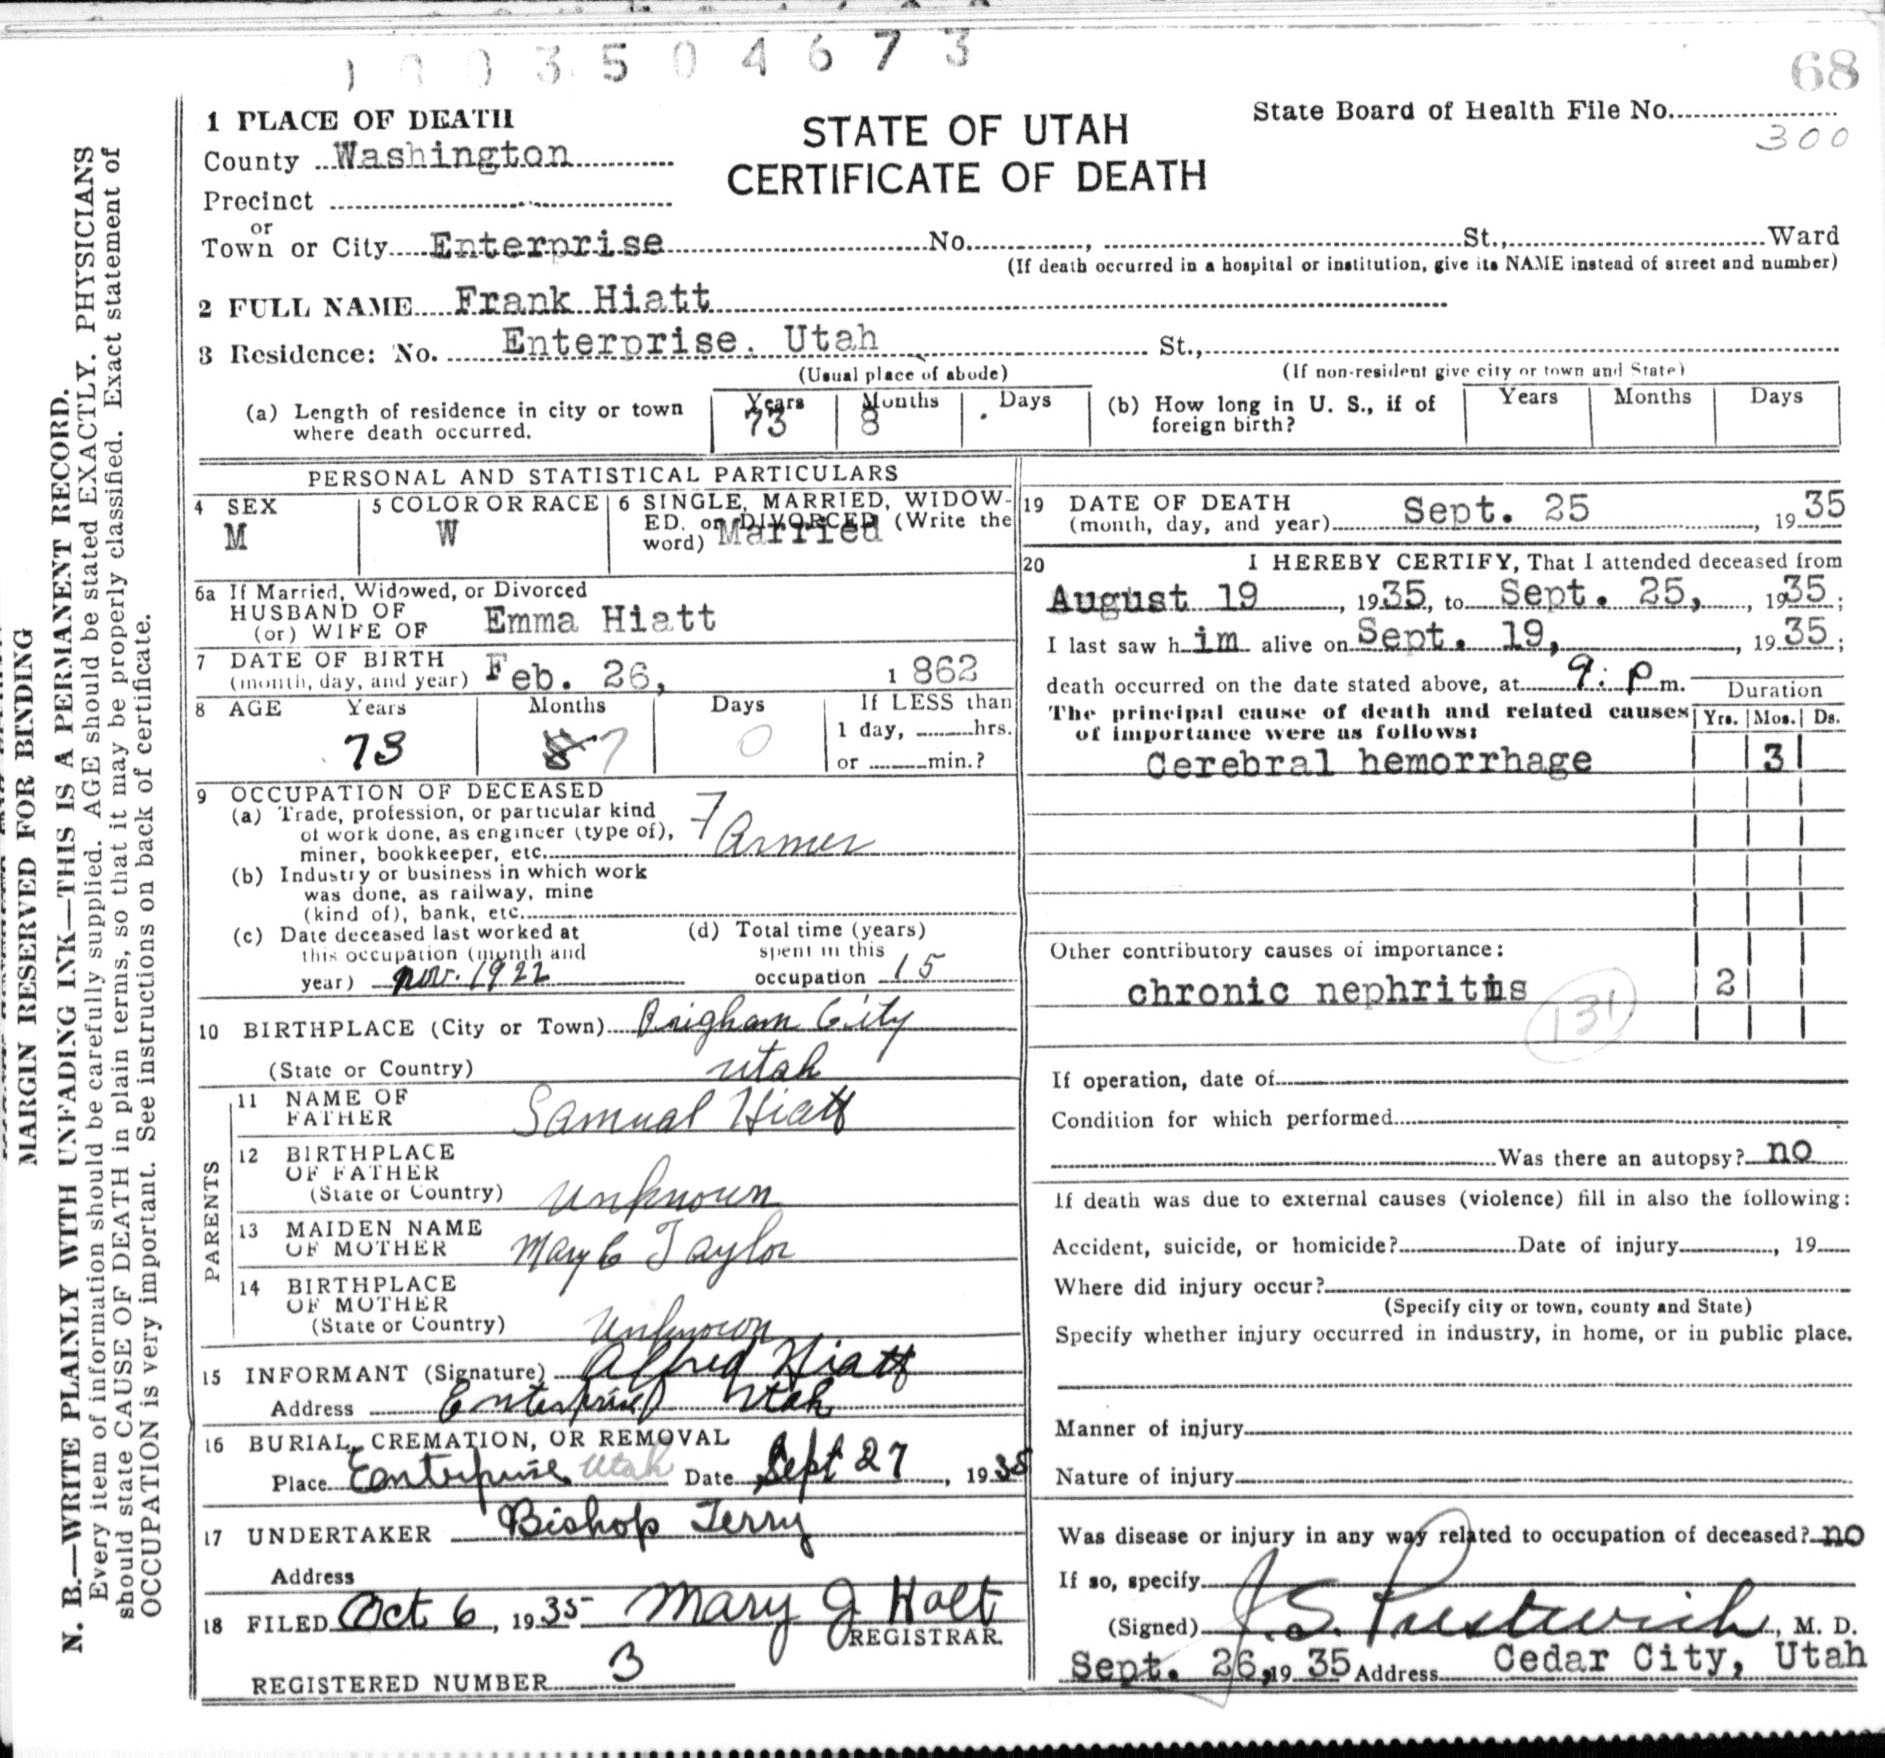 1 0 0 3 5 0 4 6 7 3
68
1 PLACE OF DEATH
County Washington
Precinct
or
Town or City Enterprise No. , St., Ward
(If death occurred in a hospital or institution, give its NAME instead of street and number)
STATE OF UTAH
CERTIFICATE OF DEATH
State Board of Health File No.
300
2 FULL NAME Frank Hiatt
3 Residence: No. Enterprise. Utah St.,
(Usual place of abode) (If non-resident give city or town and State)
(a) Length of residence in city or town where death occurred. Years 73 Months 8 Days
(b) How long in U. S., if of foreign birth? Years Months Days
PERSONAL AND STATISTICAL PARTICULARS
4 SEX
M
5 COLOR OR RACE
W
6 SINGLE, MARRIED, WIDOW-
ED, or DIVORCED (Write the
word) Married
6a If Married, Widowed, or Divorced
HUSBAND OF
(or) WIFE OF Emma Hiatt
7 DATE OF BIRTH
(month, day, and year) Feb. 26, 1862
8 AGE Years Months Days If LESS than
73 8 7 0 1 day, hrs.
or min.?
9 OCCUPATION OF DECEASED
(a) Trade, profession, or particular kind
of work done, as engineer (type of),
miner, bookkeeper, etc. Farmer
(b) Industry or business in which work
was done, as railway, mine
(kind of), bank, etc.
(c) Date deceased last worked at
this occupation (month and
year) Nov. 1922
(d) Total time (years)
spent in this
occupation 15
10 BIRTHPLACE (City or Town) Brigham City
(State or Country) Utah
PARENTS
11 NAME OF
FATHER Samual Hiatt
12 BIRTHPLACE
OF FATHER
(State or Country) Unknown
13 MAIDEN NAME
OF MOTHER Mary C Taylor
14 BIRTHPLACE
OF MOTHER
(State or Country) Unknown
15 INFORMANT (Signature) Alfred Hiatt
Address Enterprise Utah
16 BURIAL, CREMATION, OR REMOVAL
Place Enterprise Utah Date Sept 27, 1935
17 UNDERTAKER Bishop Terry
Address
18 FILED Oct 6, 1935 Mary J Holt
REGISTRAR.
REGISTERED NUMBER 3
19 DATE OF DEATH
(month, day, and year) Sept. 25, 1935
20 I HEREBY CERTIFY, That I attended deceased from
August 19, 1935, to Sept. 25, , 1935;
I last saw h im alive on Sept. 19, , 1935;
death occurred on the date stated above, at 9: p m.
Duration
The principal cause of death and related causes Yrs. Mos. Ds.
of importance were as follows:
Cerebral hemorrhage 3
Other contributory causes of importance:
chronic nephritis 2
131
If operation, date of
Condition for which performed
Was there an autopsy? no
If death was due to external causes (violence) fill in also the following:
Accident, suicide, or homicide? Date of injury , 19
Where did injury occur?
(Specify city or town, county and State)
Specify whether injury occurred in industry, in home, or in public place.
Manner of injury
Nature of injury
Was disease or injury in any way related to occupation of deceased? no
If so, specify
(Signed) J. S. Prestwich, M. D.
Sept. 26, 1935 Address Cedar City, Utah
MARGIN RESERVED FOR BINDING
N. B.—WRITE PLAINLY WITH UNFADING INK—THIS IS A PERMANENT RECORD.
Every item of information should be carefully supplied. AGE should be stated EXACTLY. PHYSICIANS
should state CAUSE OF DEATH in plain terms, so that it may be properly classified. Exact statement of
OCCUPATION is very important. See instructions on back of certificate.